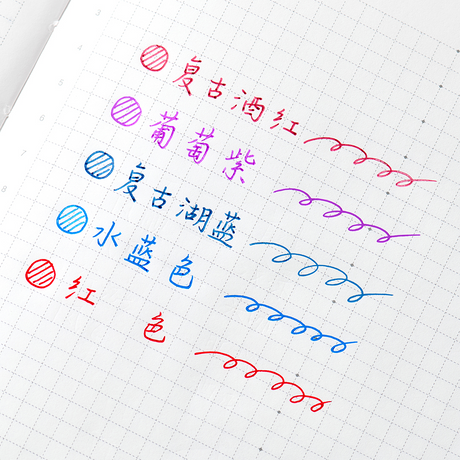 复古酒红
葡萄紫
复古湖蓝
水蓝色
红色